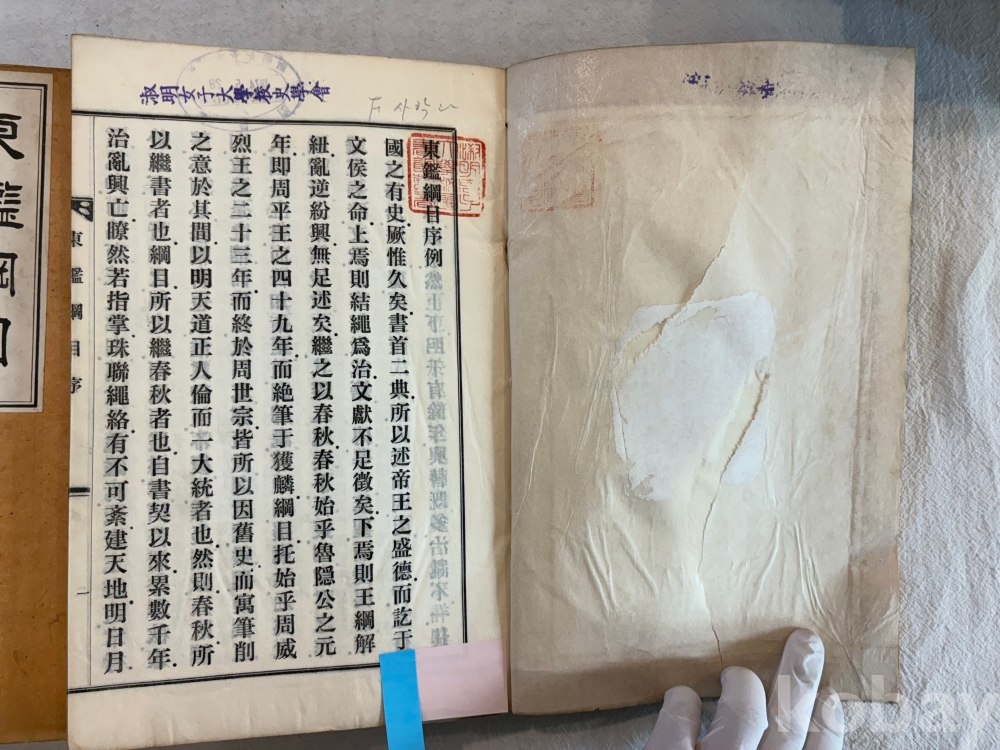 淑明女子大學校史學會
東鑑綱目序例
國之有史厥惟久矣書首二典所以述帝王之盛德而訖于
文侯之命上焉則結繩爲治文獻不足徵矣下焉則王綱解
紐亂逆紛興無足述矣繼之以春秋春秋始乎魯隱公之元
年即周平王之四十九年而絶筆于獲麟綱目托始乎周威
烈王之二十三年而終於周世宗皆所以因舊史而寓筆削
之意於其間以明天道正人倫而一大統者也然則春秋所
以繼書者也綱目所以繼春秋者也自書契以來累數千年
治亂興亡瞭然若指掌珠聯繩絡有不可紊建天地明日月
東鑑綱目序
一
東鑑綱目
kobay